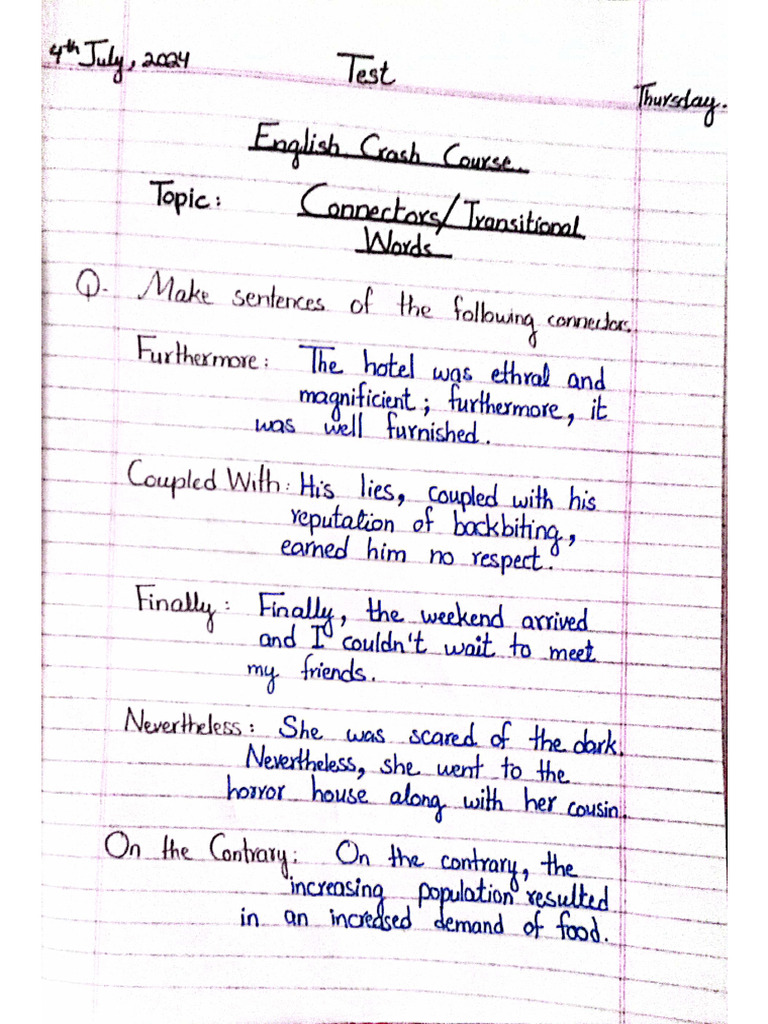 4th July, 2024 Test Thursday.
English Crash Course.
Topic: Connectors/Transitional
Words
Q. Make sentences of the following connectors.
Furthermore: The hotel was ethral and
magnificient; furthermore, it
was well furnished.
Coupled With: His lies, coupled with his
reputation of backbiting,
earned him no respect.
Finally: Finally, the weekend arrived
and I couldn't wait to meet
my friends.
Nevertheless: She was scared of the dark.
Nevertheless, she went to the
horror house along with her cousin.
On the Contrary: On the contrary, the
increasing population resulted
in an increased demand of food.